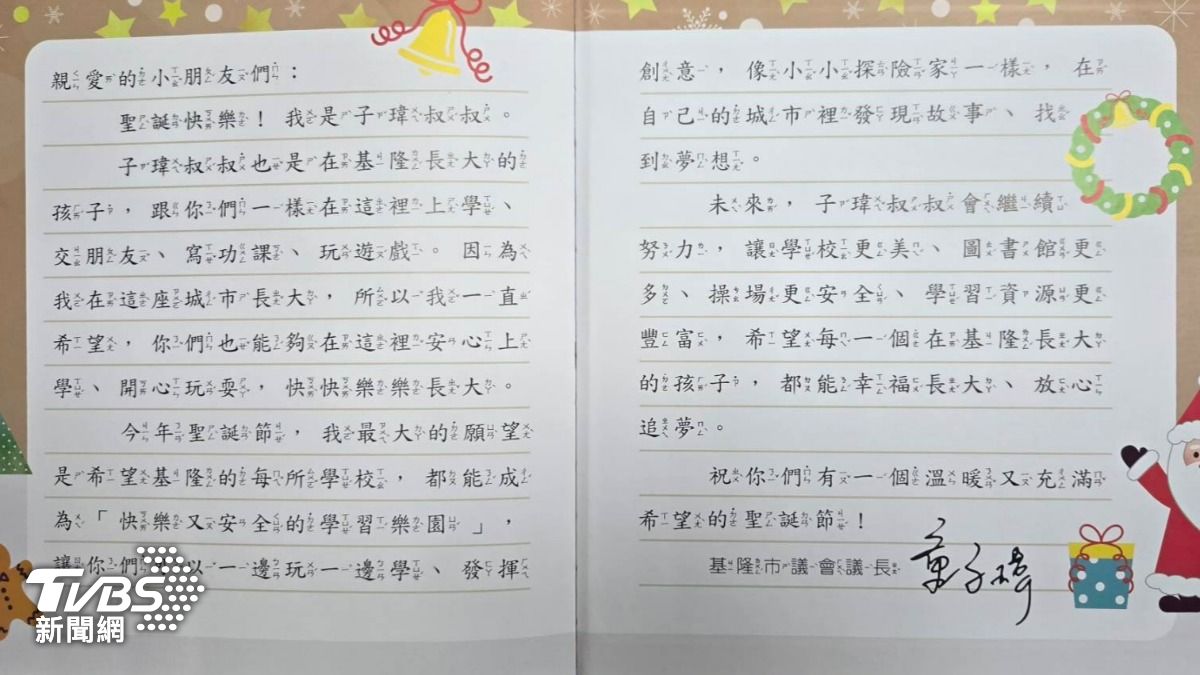 親愛的小朋友們：
聖誕快樂！我是子瑋叔叔。
子瑋叔叔也是在基隆長大的
孩子，跟你們一樣在這裡上學、
交朋友、寫功課、玩遊戲。因為
我在這座城市長大，所以我一直
希望，你們也能夠在這裡安心上
學、開心玩耍，快快樂樂長大。
今年聖誕節，我最大的願望
是希望基隆的每所學校，都能成
為「快樂又安全的學習樂園」，
讓你們 以一邊玩一邊學、發揮
創意，像小小探險家一樣，在
自己的城市裡發現故事、找
到夢想。
未來，子瑋叔叔會繼續
努力，讓學校更美、圖書館更
多、操場更安全、學習資源更
豐富，希望每一個在基隆長大
的孩子，都能幸福長大、放心
追夢。
祝你們有一個溫暖又充滿
希望的聖誕節！
基隆市議會議長 童子瑋
TVBS
新聞網